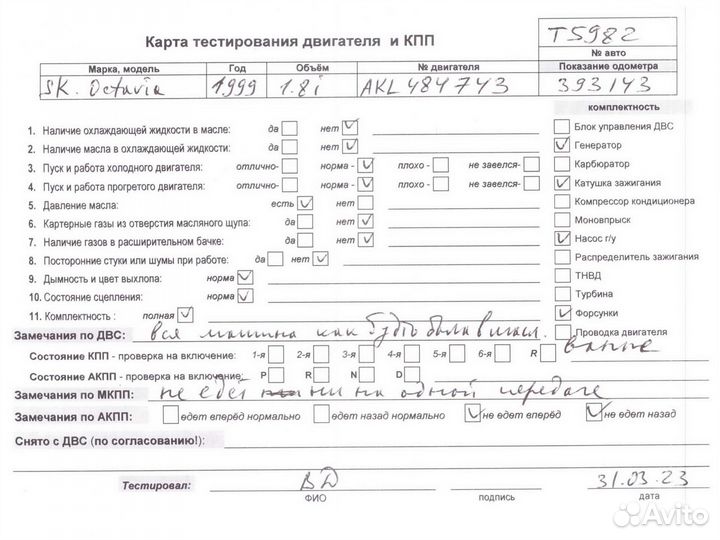 T5982
Карта тестирования двигателя и КПП
№ авто
Марка, модель Год Объём № двигателя Показание одометра
SK. Octavia 1999 1.8i AKL 484743 393143
комплектность
1. Наличие охлаждающей жидкости в масле: да нет Блок управления ДВС
2. Наличие масла в охлаждающей жидкости: да нет Генератор
3. Пуск и работа холодного двигателя: отлично- норма - плохо - не завелся- Карбюратор
4. Пуск и работа прогретого двигателя: отлично- норма - плохо - не завелся- Катушка зажигания
5. Давление масла: есть нет Компрессор кондиционера
6. Картерные газы из отверстия масляного щупа: да нет Моновпрыск
7. Наличие газов в расширительном бачке: да нет Насос г/у
8. Посторонние стуки или шумы при работе: да нет Распределитель зажигания
9. Дымность и цвет выхлопа: норма ТНВД
10. Состояние сцепления: норма Турбина
11. Комплектность : полная Форсунки
Замечания по ДВС: вся машина как будто была в масл. Проводка двигателя
ванне
Состояние КПП - проверка на включение: 1-я 2-я 3-я 4-я 5-я 6-я R
Состояние АКПП - проверка на включение: P R N D
Замечания по МКПП: не едет ни на одной передаче
Замечания по АКПП: едет вперёд нормально едет назад нормально не едет вперёд не едет назад
Снято с ДВС (по согласованию!):
Тестировал: ВД 31.03.23
ФИО подпись дата
Avito